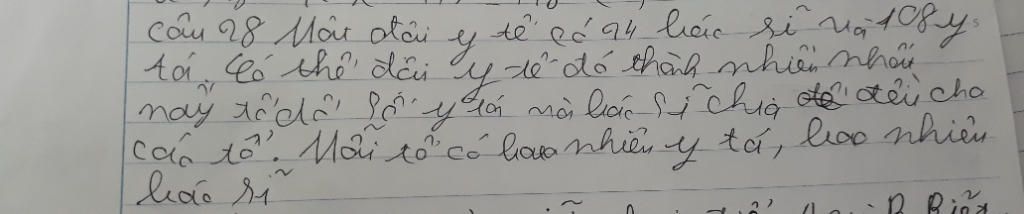 câu 28 Một đội y tế có 24 bác sĩ và 108 y
tá. Có thể đội y tế đó thành nhiều nhất
mấy tổ để số y tá và bác sĩ chia đều cho
các tổ. Mỗi tổ có bao nhiêu y tá, bao nhiêu
bác sĩ